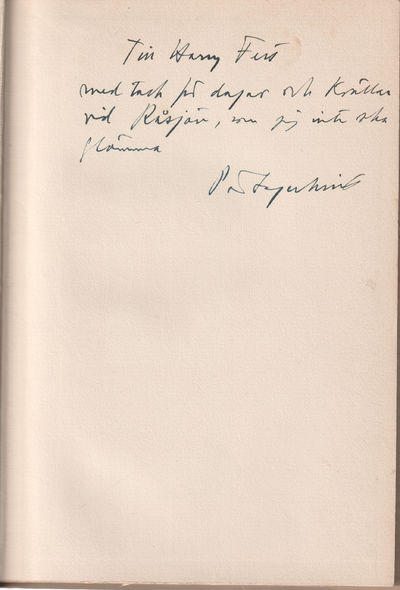 Till Harry Fett
med tack för dagar och kvällar
vid Råsjön, som jag inte ska
glömma
Pär Lagerkvist